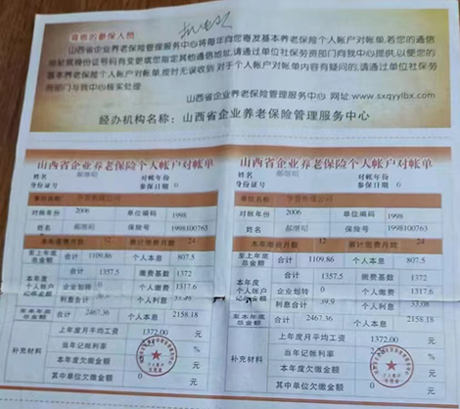 尊敬的参保人员
山西省企业养老保险管理服务中心将每年向您寄发基本养老保险个人帐户对帐单,若您的通信
地址或身份证号码有变更或您指定其他通信地址,请通过单位社保劳资部门向我中心提供,以便您的
基本养老保险个人帐户对帐单,按时无误收到 对于个人帐户对帐单内容有疑问的,请通过单位社保
劳资部门与我中心核实处理
山西省企业养老保险管理服务中心 网址:www.sxqyylbx.com
经办机构名称:山西省企业养老保险管理服务中心
山西省企业养老保险个人帐户对帐单
姓名 郝继明 对帐年份
身份证号 参保日期 0
对帐年份 2006 单位编码 1998
姓名 郝继明 保险号 1998100763
本年缴费月数 12 累计缴费月数 24
至上年底总金额 合计 1109.86 个人本息 807.5
本年度个人帐户记帐金额 合计 1357.5 缴费基数 1372
企业划转 0 个人缴费 1317.6
利息合计 39.9 个人利息 33.08
至本年底总金额 合计 2467.36 个人本息 2158.18
补充材料 上年度月平均工资 1372.00 元
当年记帐利率 %
本年度欠缴金额 0 元
其中单位欠缴金额 0 元
山西省企业养老保险个人帐户对帐单
姓名 郝继明 对帐年份
身份证号 参保日期 0
对帐年份 2006 单位编码 1998
姓名 郝继明 保险号 1998100763
本年缴费月数 12 累计缴费月数 24
至上年底总金额 合计 1109.86 个人本息 807.5
本年度个人帐户记帐金额 合计 1357.5 缴费基数 1372
企业划转 0 个人缴费 1317.6
利息合计 39.9 个人利息 33.08
至本年底总金额 合计 2467.36 个人本息 2158.18
补充材料 上年度月平均工资 1372.00 元
当年记帐利率 %
本年度欠缴金额 0 元
其中单位欠缴金额 0 元